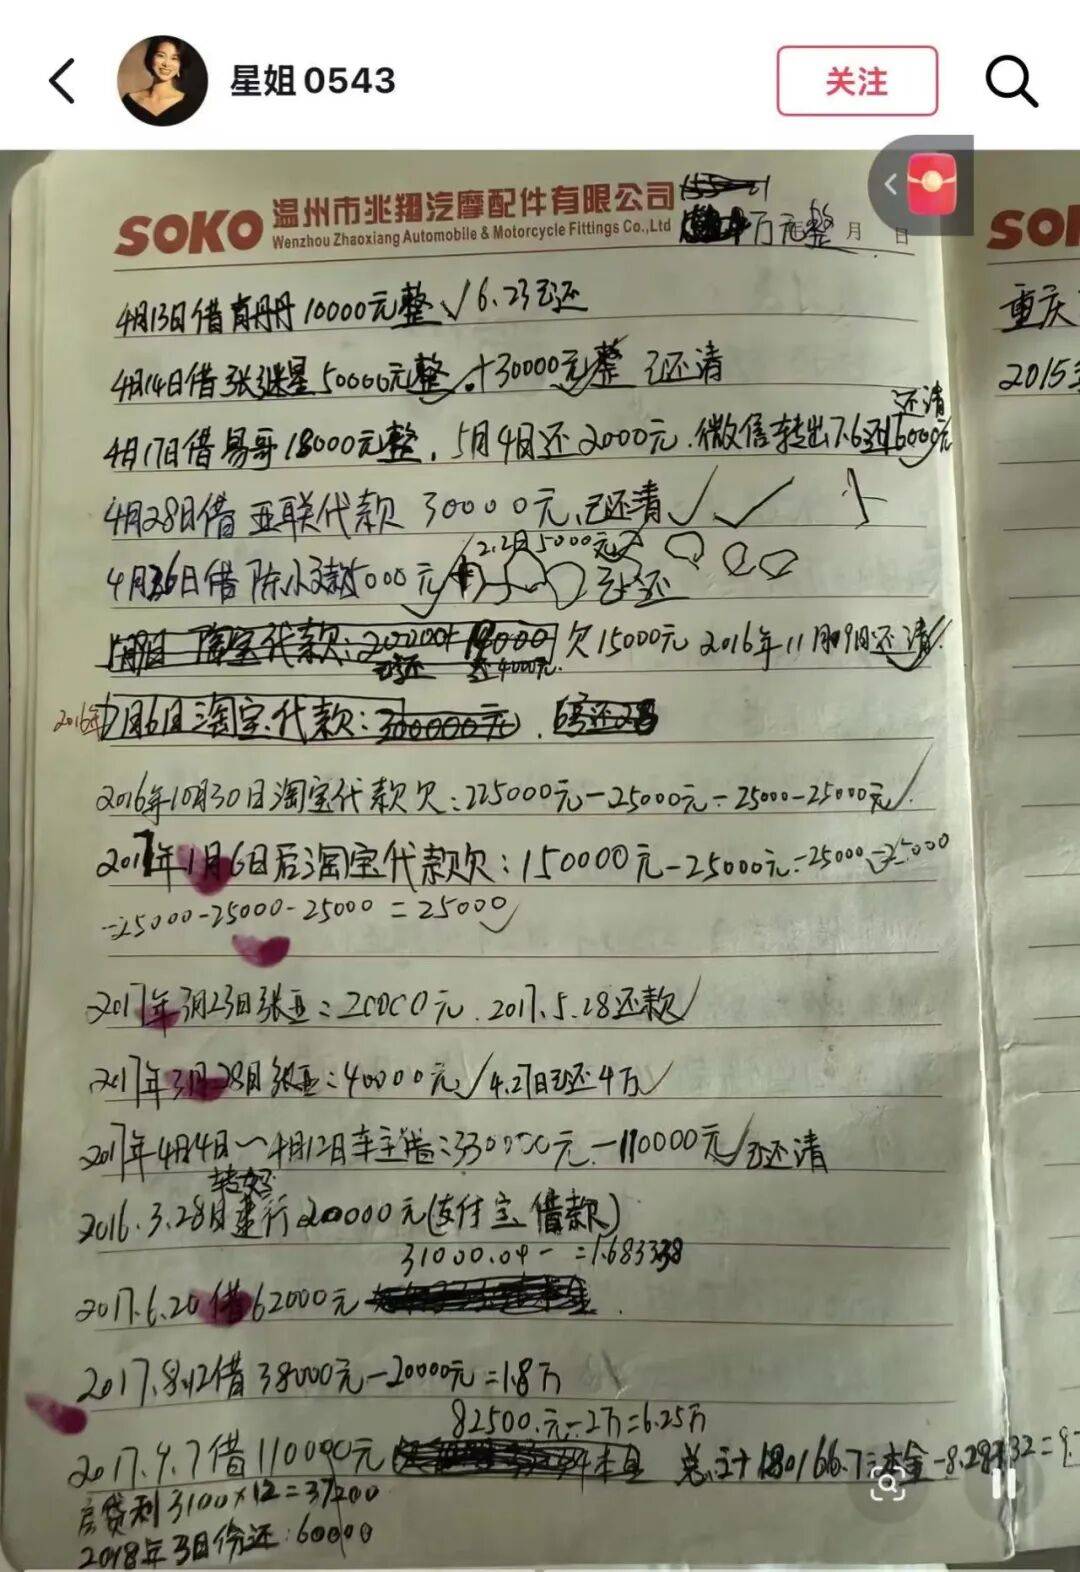 星姐0543
关注
SOKO 温州市兆翔汽摩配件有限公司
Wenzhou Zhaoxiang Automobile & Motorcycle Fittings Co.,Ltd
万元整 月 日
4月13日借肖丹丹10000元整√6.23已还
4月14日借张继星50000元整√+30000元整 已还清
还清
4月17日借易哥18000元整,5月4日还2000元.微信转出7.6还16000元
4月28日借亚联代款 30000元、已还清√√
2.2日5000元
4月26日借陈小 5000元 已还
淘宝代款:200000+ 欠15000元 2016年11月09日还清√
已还 还4000元
2016年7月6日淘宝代款:300000元. 6号还
2016年10月30日淘宝代款欠:225000元-25000元-25000-25000元√
2017年1月6日后淘宝代款欠:150000元-25000元-25000-25000
-25000-25000-25000=25000√
2017年3月23日张亚:20000元.2017.5.28还款√
2017年3月28日张亚:40000元√4.27日已还4万√
2017年4月4日~4月12日车主借:330000元-110000元√已还清
转好
2016.3.28日建行200000元(支付宝借款)
31000.04- =1.683338
2017.6.20借62000元
2017.8.12借38000元-20000元=1.8万
82500.元-2万=6.25万
2017.9.7借110000元 本息 总计180166.7 本金-8.28
房贷利3100×12=37200
2018年3月份还:60000
SO
重庆
2015